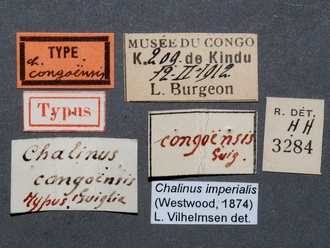 TYPE
ch.
congoënsis
MUSÉE DU CONGO
K. 209. de Kindu
12-II-1912
L. Burgeon
Typus
Chalinus
congoënsis
Typus! Guiglia
congoënsis
Guig.
Chalinus imperialis
(Westwood, 1874)
L. Vilhelmsen det.
R. DÉT.
HH
3284